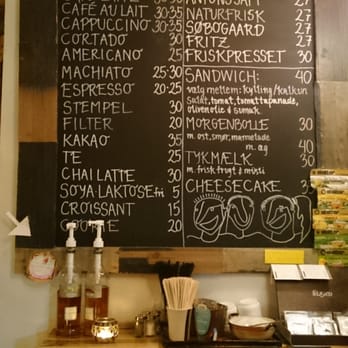 CAFÉ AU LAIT 30·35
CAPPUCCINO 30·35
CORTADO 30
AMERICANO 25
MACHIATO 25·30
ESPRESSO 20·25
STEMPEL 30
FILTER 20
KAKAO 35
TE 25
CHAI LATTE 30
SOYA·LAKTOSEfri 5
CROISSANT 15
COOKIE 20
NATURFRISK 27
SØBOGAARD 27
FRITZ 27
FRISKPRESSET 30
SANDWICH: 40
valg mellem: kylling/kalkun
salat, tomat, tomattapanade,
olivenolie &
MORGENBOLLE 30
m. ost, smør, marmelade
m. æg 40
TYKMELK 30
m. frisk frugt & müsli
CHEESECAKE 35